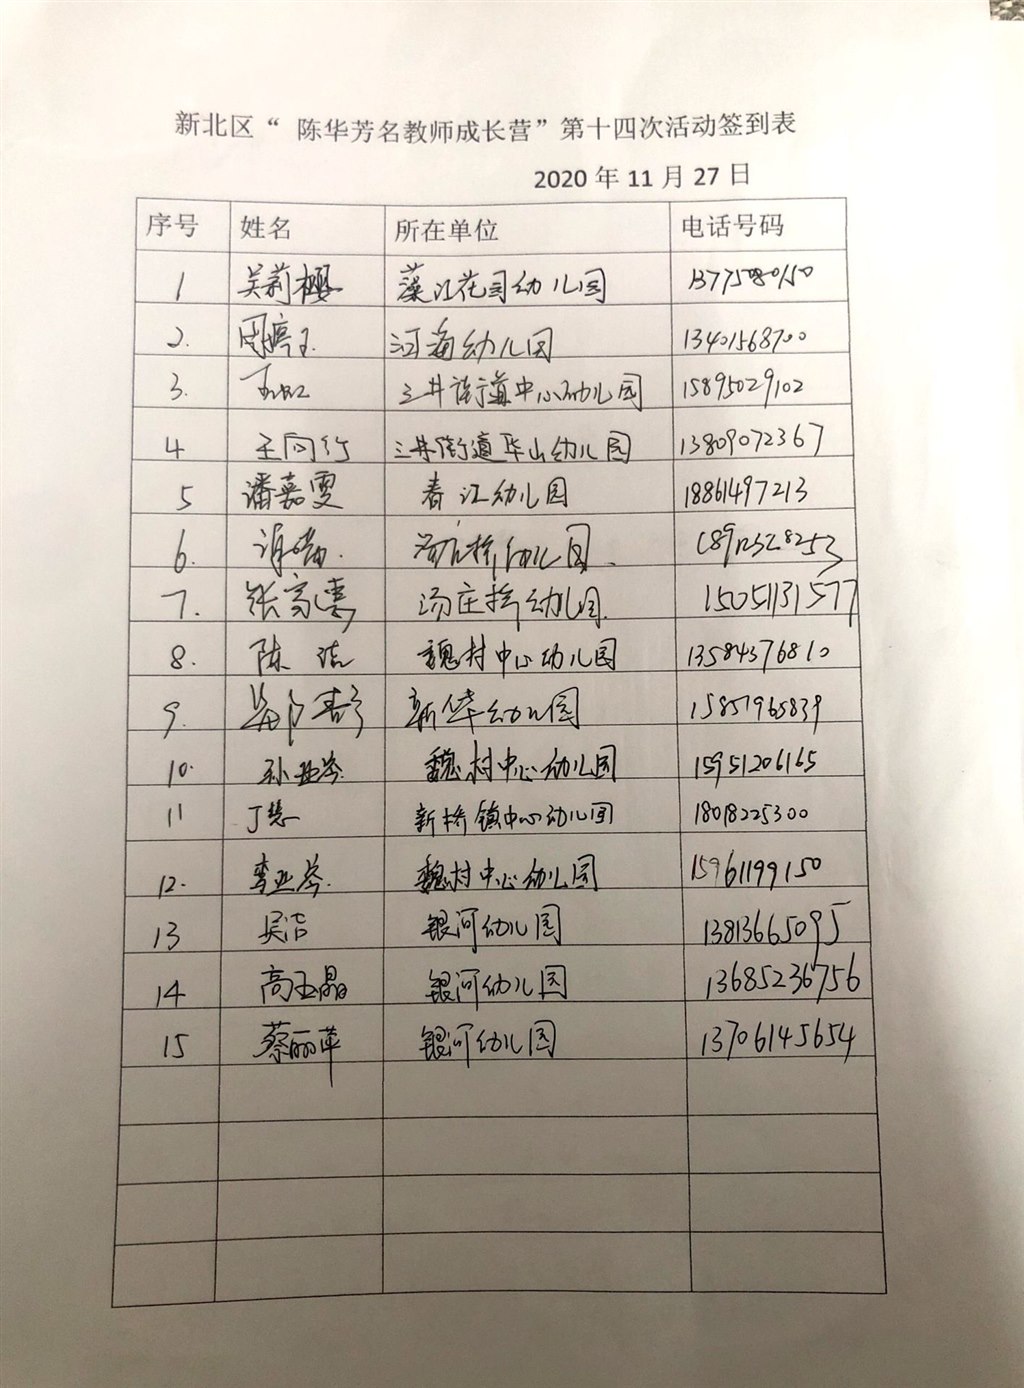 新北区“ 陈华芳名教师成长营”第十四次活动签到表
2020 年 11 月 27 日
序号 姓名 所在单位 电话号码
1 吴莉樱 藻江花园幼儿园 13775080150
2. 周婷玉 河海幼儿园 13401568700
3. 三井街道中心幼儿园 15895029102
4 王向行 三井街道华山幼儿园 13809072367
5 潘嘉雯 春江幼儿园 18861497213
6. 汤庄桥幼儿园.
7. 张 汤庄桥幼儿园. 15051131577
8. 陈洁 魏村中心幼儿园 13584376810
9. 新华幼儿园 15851965839
10. 孙亚琴 魏村中心幼儿园 15951206165
11 丁慧 新桥镇中心幼儿园 18018225300
12. 李亚琴. 魏村中心幼儿园 15961199150
13 吴洁 银河幼儿园 13813665095
14 高玉晶 银河幼儿园 13685236756
15 蔡丽萍 银河幼儿园 13706145654